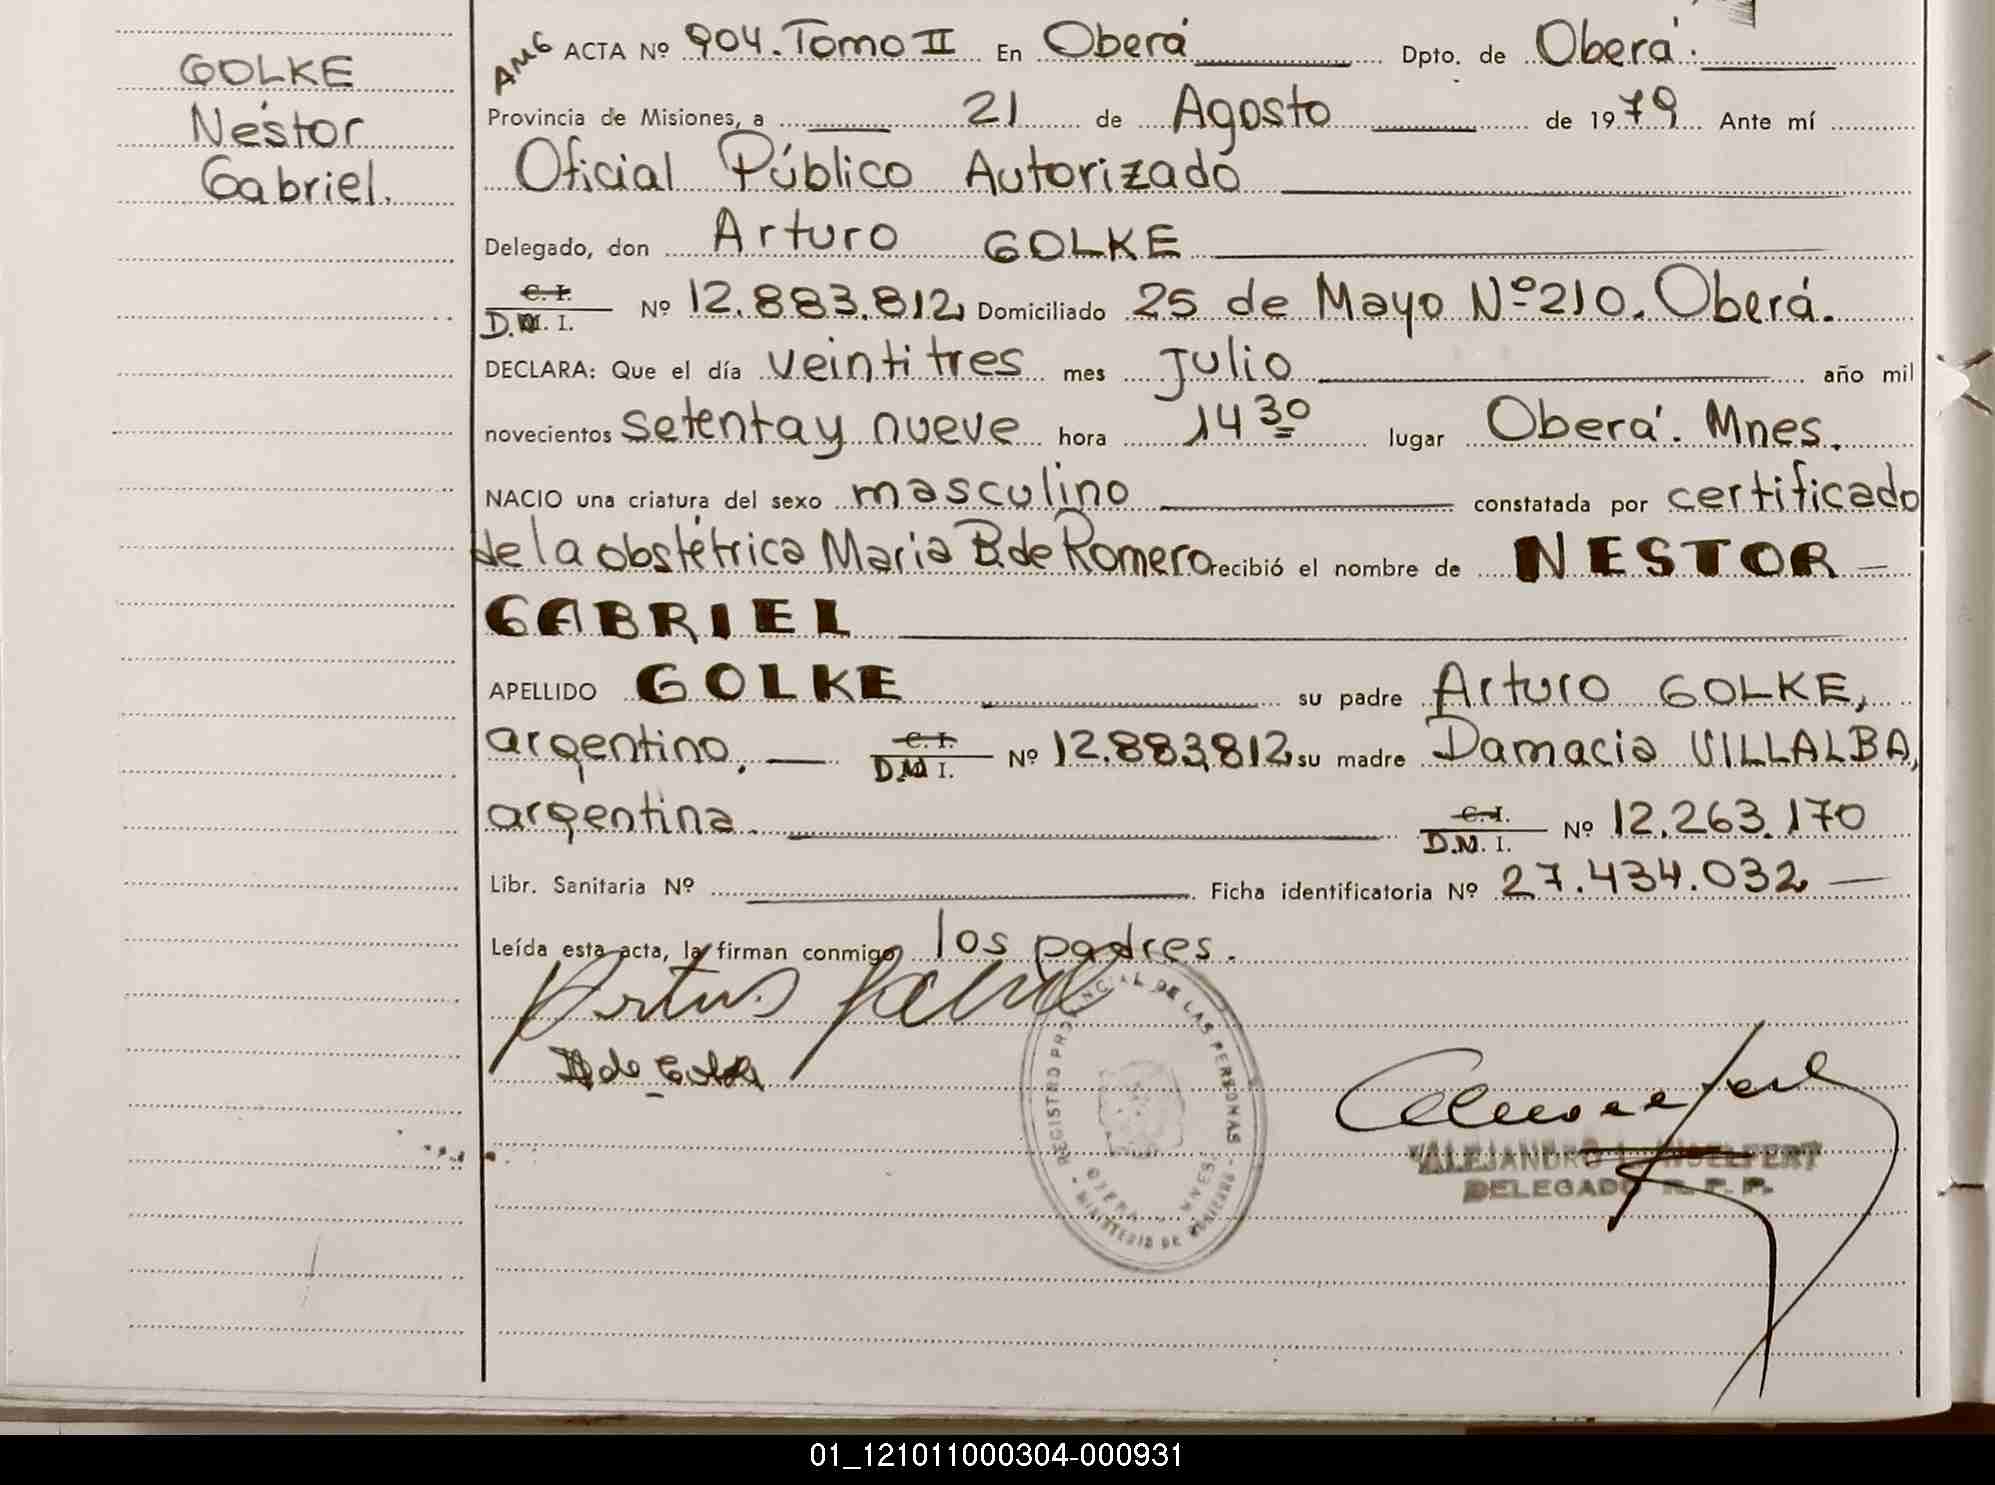 GOLKE
Néstor
Gabriel.
AMG ACTA Nº 904. Tomo II En Oberá Dpto. de Oberá.
Provincia de Misiones, a 21 de Agosto de 1979 Ante mí
Oficial Público Autorizado
Delegado, don Arturo GOLKE
C. I.
D.N. I. Nº 12.883.812, Domiciliado 25 de Mayo Nº 210. Oberá.
DECLARA: Que el día veintitres mes Julio año mil
novecientos setenta y nueve hora 14 30 lugar Oberá. Mnes.
NACIO una criatura del sexo masculino constatada por certificado
de la obstétrica Maria B. de Romero recibió el nombre de NESTOR
GABRIEL
APELLIDO GOLKE su padre Arturo GOLKE,
argentino. C. I. D.N. I. Nº 12.883,812, su madre Damacia VILLALBA,
argentina. C. I. D.N. I. Nº 12.263.170
Libr. Sanitaria Nº Ficha identificatoria Nº 27.434.032,
Leída esta acta, la firman conmigo los padres.
REGISTRO PROVINCIAL DE LAS PERSONAS
OBERA - MNES.
MINISTERIO DE
ALEJANDRO
DELEGADO R. P. P.
01_121011000304-000931